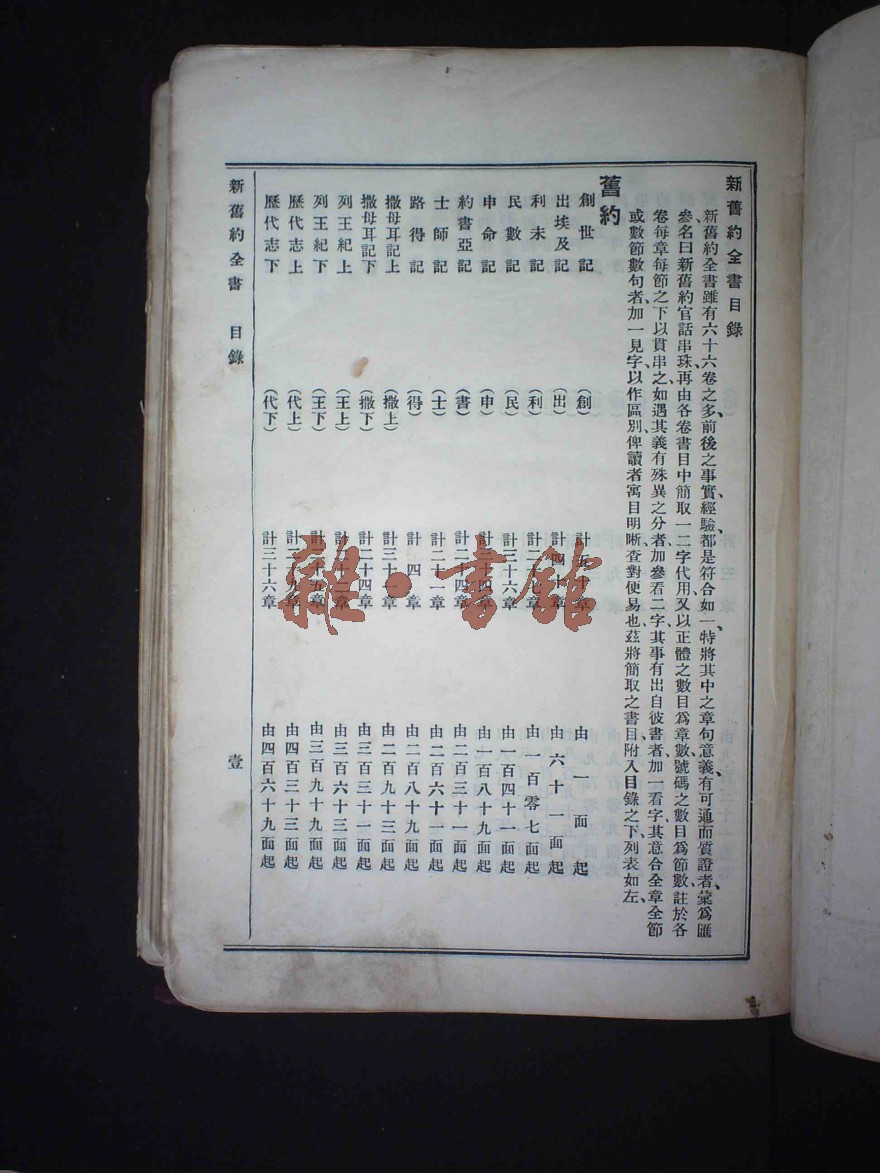 新舊約全書目錄
新舊約全書雖有六十六卷之多、前後之事實經驗、都是符合如一、特將其中之章句意義、有可通而質證者、彙爲匯
參名曰新舊約官話串珠、再由各卷書目中簡取一二字代用、又以正體之數目爲章數、號碼之數目爲節數、註於各
卷每章每節之下、以貫串之、如遇其義有殊異之分者、加參看二字、其事有出自彼書者、加一看字、其意合全章全節
或數節數句者、加一見字、以作區別、俾讀者寓目明晰、查對便易也、茲將簡取之書目、附入目錄之下、列表如左、
舊約
創世記 (創) 計五十章 由一面起
出埃及記 (出) 計四十章 由六十一面起
利未記 (利) 計二十七章 由一百零七面起
民數記 (民) 計三十六章 由一百四十一面起
申命記 (申) 計三十四章 由一百八十九面起
約書亞記 (書) 計二十四章 由二百三十一面起
士師記 (士) 計二十一章 由二百六十一面起
路得記 (得) 計四章 由二百八十九面起
撒母耳記上 (撒上) 計三十一章 由二百九十三面起
撒母耳記下 (撒下) 計二十四章 由三百三十一面起
列王紀上 (王上) 計二十二章 由三百六十三面起
列王紀下 (王下) 計二十五章 由三百九十九面起
歷代志上 (代上) 計二十九章 由四百三十三面起
歷代志下 (代下) 計三十六章 由四百六十九面起
新舊約全書 目錄 壹
雜·書館